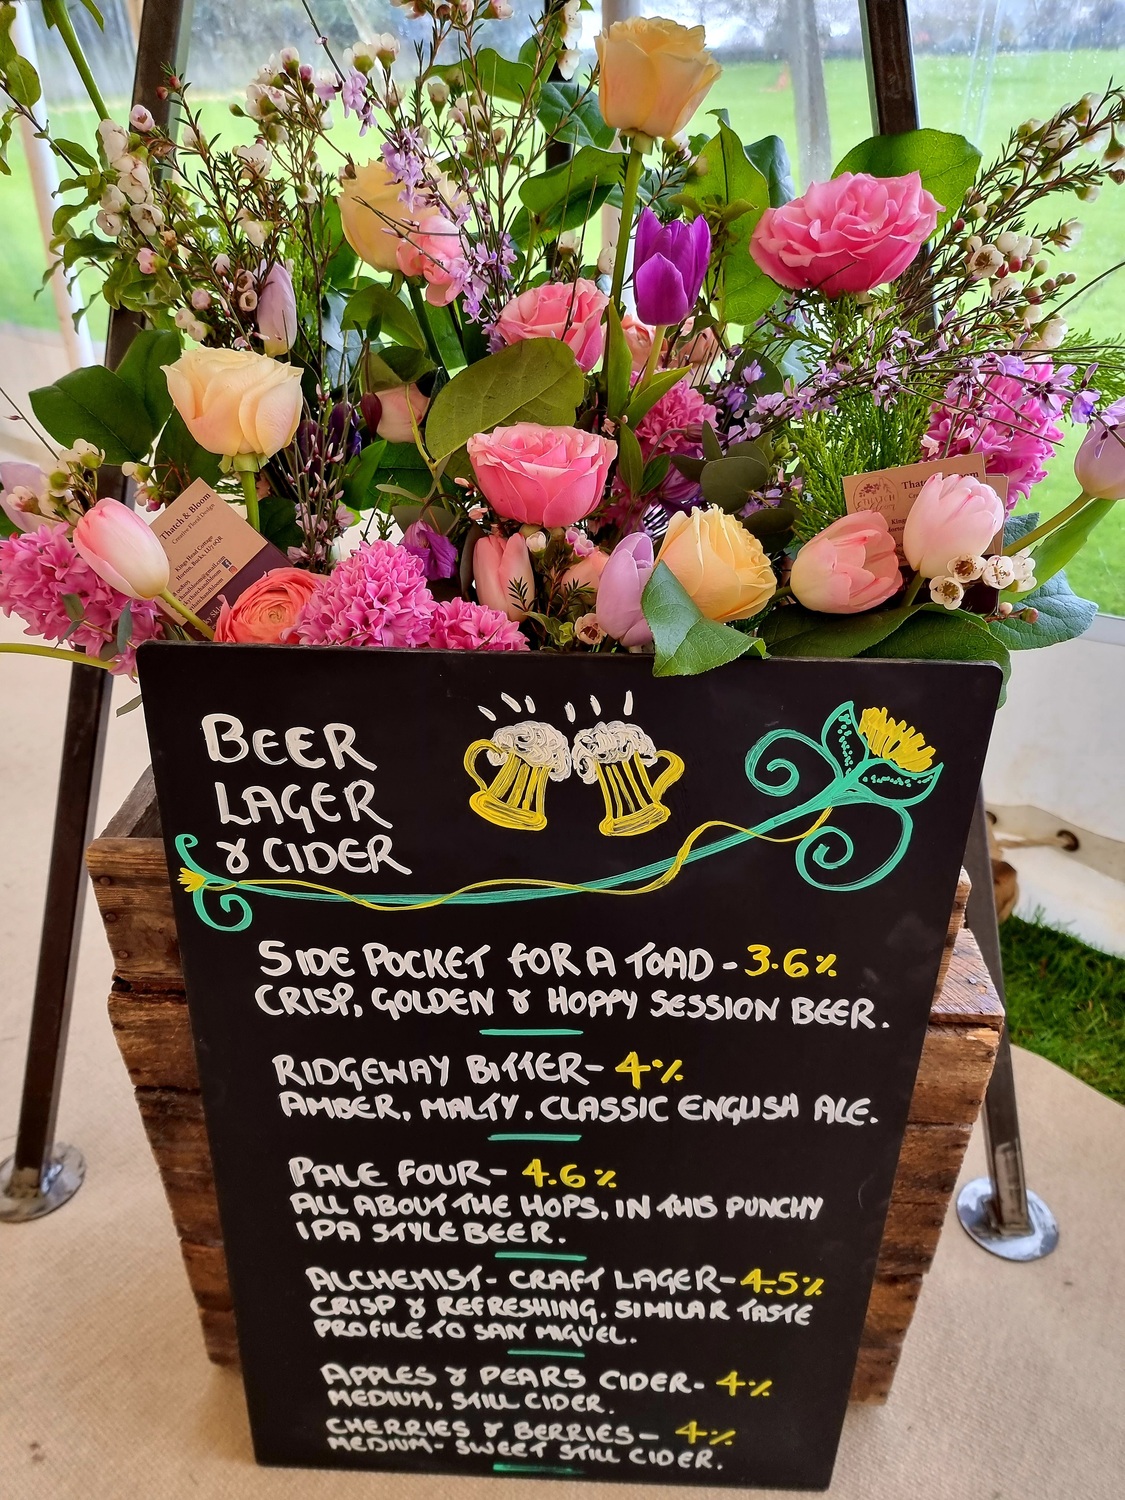 Thatch & Bloom
Creative Floral Design
Kings Head Cottage
BEER
LAGER
& CIDER
SIDE POCKET FOR A TOAD - 3.6%
CRISP, GOLDEN & HOPPY SESSION BEER.
RIDGEWAY BITTER - 4%
AMBER, MALTY, CLASSIC ENGLISH ALE.
PALE FOUR - 4.6%
ALL ABOUT THE HOPS, IN THIS PUNCHY
IPA STYLE BEER.
ALCHEMIST - CRAFT LAGER - 4.5%
CRISP & REFRESHING. SIMILAR TASTE
PROFILE TO SAN MIGUEL.
APPLES & PEARS CIDER - 4%
MEDIUM, STILL CIDER.
CHERRIES & BERRIES - 4%
MEDIUM - SWEET STILL CIDER.